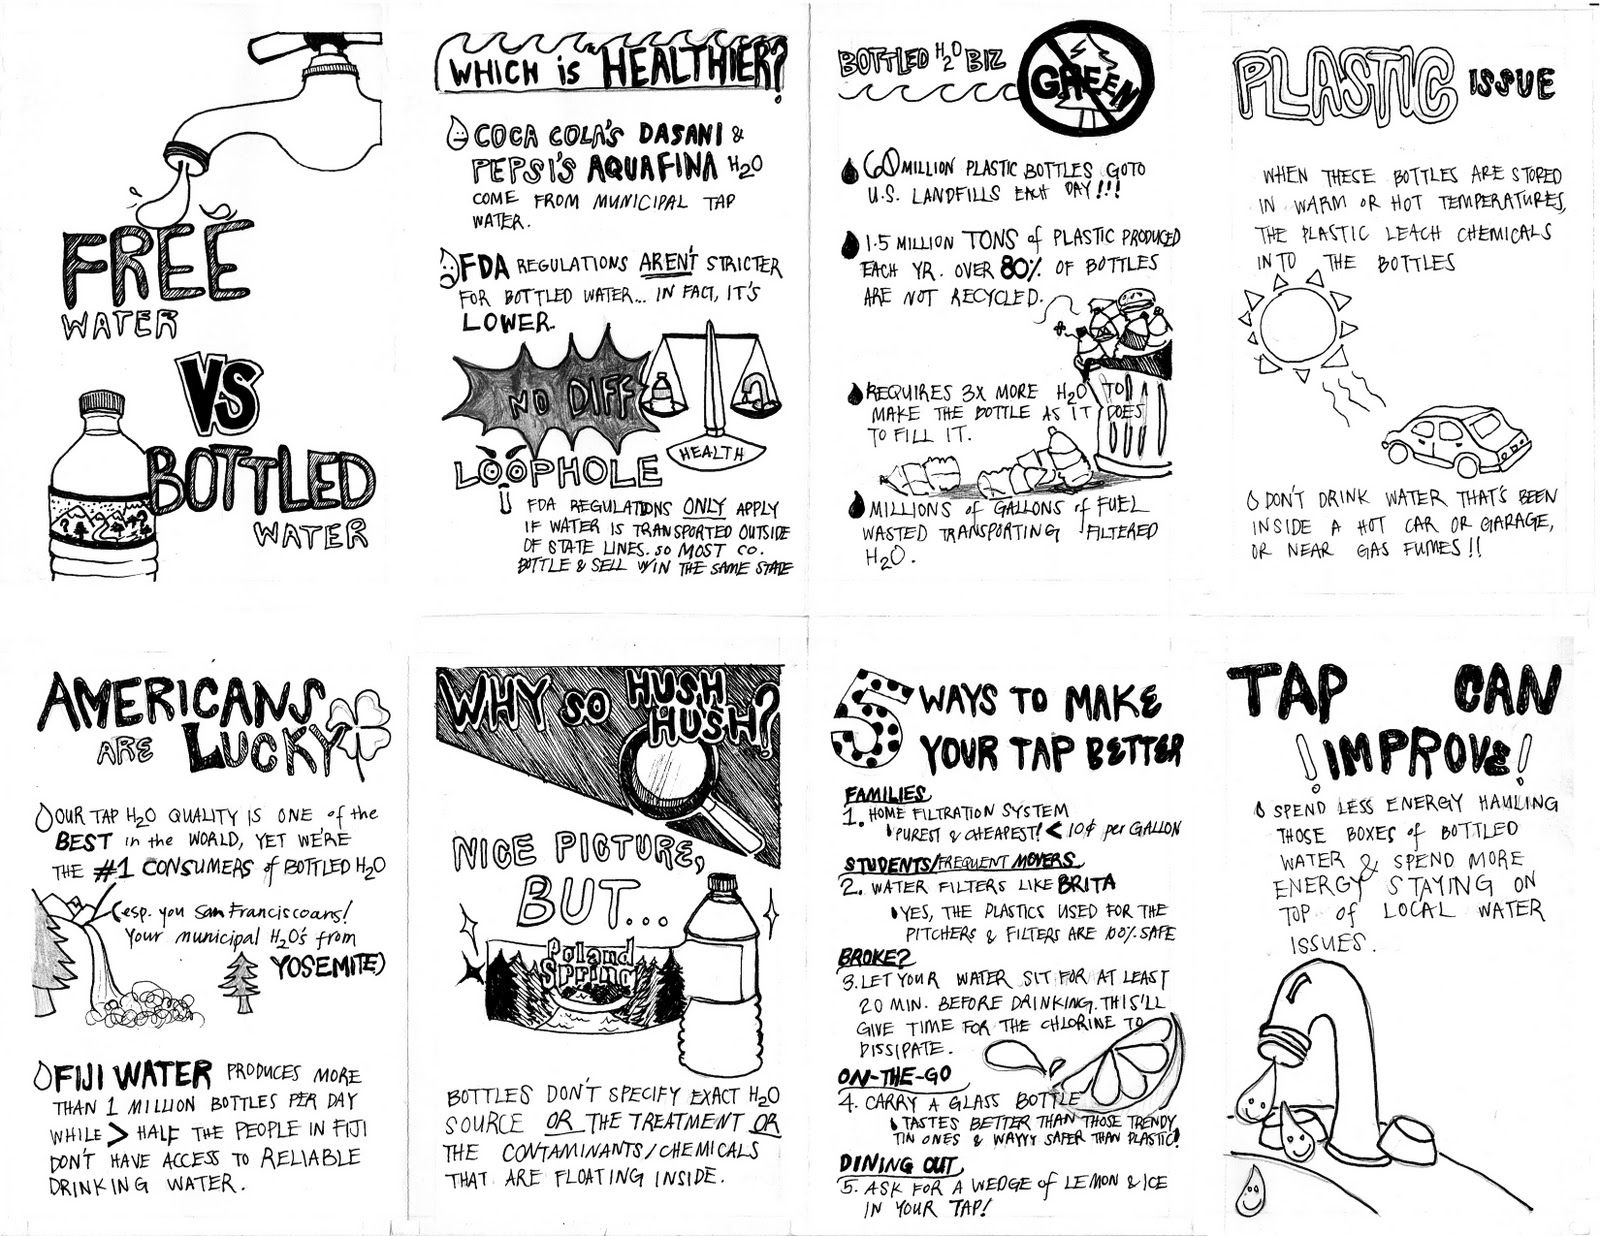 FREE
WATER
VS
BOTTLED
WATER
WHICH is "HEALTHIER?
COCA COLA'S DASANI &
PEPSI'S AQUAFINA H2O
COME FROM MUNICIPAL TAP
WATER.
FDA REGULATIONS AREN'T STRICTER
FOR BOTTLED WATER... IN FACT, IT'S
LOWER.
NO DIFF
HEALTH
LOOPHOLE
FDA REGULATIONS ONLY APPLY
IF WATER IS TRANSPORTED OUTSIDE
OF STATE LINES. SO MOST CO.
BOTTLE & SELL W/IN THE SAME STATE
BOTTLED H2O BIZ
GREEN
60 MILLION PLASTIC BOTTLES GO TO
U.S. LANDFILLS EACH DAY!!!
1.5 MILLION TONS of PLASTIC PRODUCED
EACH YR. OVER 80% OF BOTTLES
ARE NOT RECYCLED.
REQUIRES 3X MORE H2O TO
MAKE THE BOTTLE AS IT DOES
TO FILL IT.
MILLIONS of GALLONS of FUEL
WASTED TRANSPORTING FILTERED
H2O.
PLASTIC ISSUE
WHEN THESE BOTTLES ARE STORED
IN WARM OR HOT TEMPERATURES,
THE PLASTIC LEACH CHEMICALS
INTO THE BOTTLES
DON'T DRINK WATER THAT'S BEEN
INSIDE A HOT CAR OR GARAGE,
OR NEAR GAS FUMES!!
AMERICANS
ARE LUCKY
OUR TAP H2O QUALITY IS ONE of the
BEST in the WORLD, YET WE'RE
THE #1 CONSUMERS of BOTTLED H2O
(esp. you San Franciscoans!
Your municipal H2O's from
YOSEMITE)
FIJI WATER PRODUCES MORE
THAN 1 MILLION BOTTLES PER DAY
WHILE > HALF THE PEOPLE IN FIJI
DON'T HAVE ACCESS TO RELIABLE
DRINKING WATER.
WHY SO HUSH
HUSH?
NICE PICTURE,
BUT...
Poland
Spring
BOTTLES DON'T SPECIFY EXACT H2O
SOURCE OR THE TREATMENT OR
THE CONTAMINANTS/CHEMICALS
THAT ARE FLOATING INSIDE.
5 WAYS TO MAKE
YOUR TAP BETTER
FAMILIES
1. HOME FILTRATION SYSTEM
PUREST & CHEAPEST! < 10¢ per GALLON
STUDENTS/FREQUENT MOVERS
2. WATER FILTERS LIKE BRITA
YES, THE PLASTICS USED FOR THE
PITCHERS & FILTERS ARE 100% SAFE
BROKE?
3. LET YOUR WATER SIT FOR AT LEAST
20 MIN. BEFORE DRINKING. THIS'LL
GIVE TIME FOR THE CHLORINE TO
DISSIPATE.
ON-THE-GO
4. CARRY A GLASS BOTTLE
TASTES BETTER THAN THOSE TRENDY
TIN ONES & WAYYY SAFER THAN PLASTIC!
DINING OUT
5. ASK FOR A WEDGE of LEMON & ICE
IN YOUR TAP!
TAP CAN
!IMPROVE!
SPEND LESS ENERGY HAULING
THOSE BOXES of BOTTLED
WATER & SPEND MORE
ENERGY STAYING ON
TOP of LOCAL WATER
ISSUES.